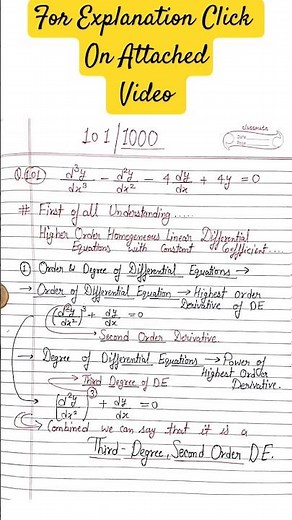 For Explanation Click
On Attached
Video
classmate
Date
Page
101/1000
Q.101 d³y/dx³ - d²y/dx² - 4 dy/dx + 4y = 0
# First of all Understanding.....
Higher Order Homogeneous Linear Differential
Equations with Constant Coefficient......
① Order & Degree of Differential Equations →
→ Order of Differential Equation → Highest Order
Derivative of DE
(d²y/dx²)³ + dy/dx = 0
→ Second Order Derivative
→ Degree of Differential Equations → Power of
Highest Order
Derivative.
→ Third Degree of DE
(d²y/dx²)③ + dy/dx = 0
→ Combined we can say that it is a
Third-Degree, Second Order D.E.